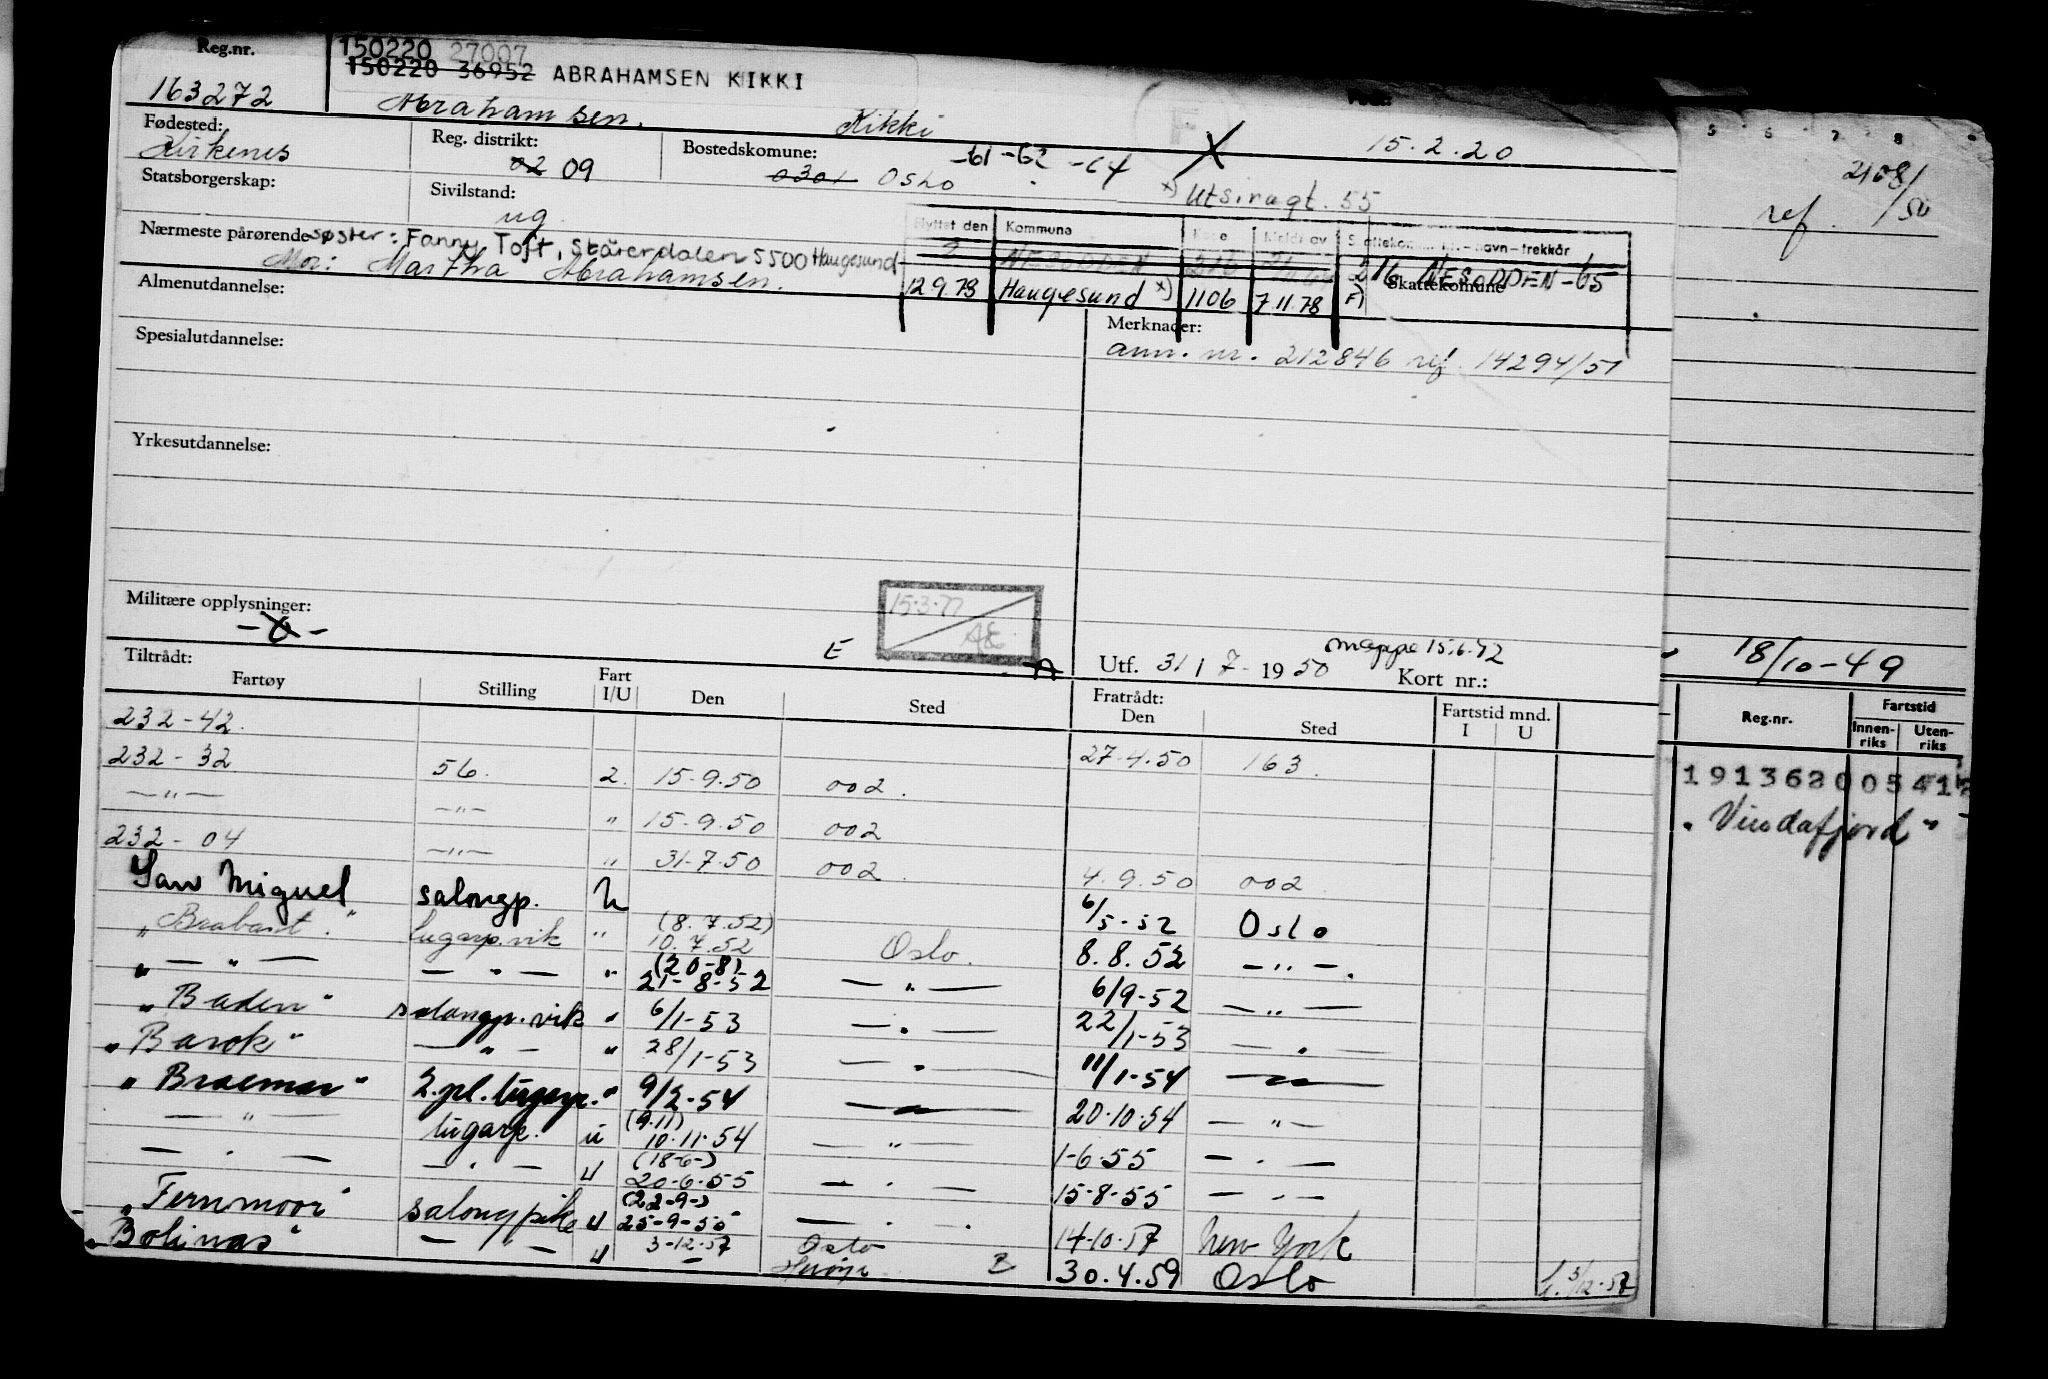 Reg.nr.
150220 27007
150220 36952 ABRAHAMSEN KIKKI
163272
Abrahamsen, Kikki 15.2.20
Fødested:
Kirkenes
Reg. distrikt:
02 09
Bostedskomune:
0301 Oslo
-61-62-64
x) Utsiragt. 55
Statsborgerskap:
Sivilstand:
ug.
Nærmeste pårørende
søster: Fanny Toft, Skårerdalen 5500 Haugesund
Mor: Martha Abrahamsen.
Flyttet den Kommune
NESODDEN
12 9.78 Haugesund x) 1106 7.11.78 F)
216 NESODDEN -65
Skattekomune
Almenutdannelse:
Merknader:
ann. nr. 212846 ref. 14294/51
Spesialutdannelse:
Yrkesutdannelse:
Militære opplysninger:
15.3.77
E
mappe 15.6.72
Utf. 31 / 7 - 1950 Kort nr.:
Tiltrådt: Fratrådt:
Fartøy Stilling Fart I/U Den Sted Den Sted Fartstid mnd. I U
232-42. 27.4.50 163.
232-32 56. 2. 15-9.50 002.
—"— —"— " 15-9.50 002
232-04 —"— " 31-7.50 002. 4.9.50 002
San Miguel salongp. U 6/5-52 Oslo
"Brabant" lugarp.vik " (8.7.52) 10.7.52 Oslo. 8.8.52 —"—.
" — " — — " — " (20-8) 21-8-52 — " — 6/9-52 — " —
"Baden" salongp.vik " 6/1-53 — " — 22/1-53 — " —
"Barok" — " — " 28/1-53 — " — 11/1-54 — " —
"Braemar" 2.pl.lugarp. " 9/2-54 — " — 20.10.54 — " —
— " — lugarp. u (9.11) 10.11.54 — " — 1-6-55 — " —
— " — — " — u (18-6-) 20-6-55 — " — 15-8-55 — " —
"Fernmoor" salongpike u (22-9-) 25-9-55 — " — 14-10-57 New York
"Bolinas" — " — u 3-12-57 Oslo 30.4.59 Oslo
5 6 7 8
ref.
/50
18/10-49
Reg.nr. Fartstid
Innen-riks Uten-riks
"Vindafjord"